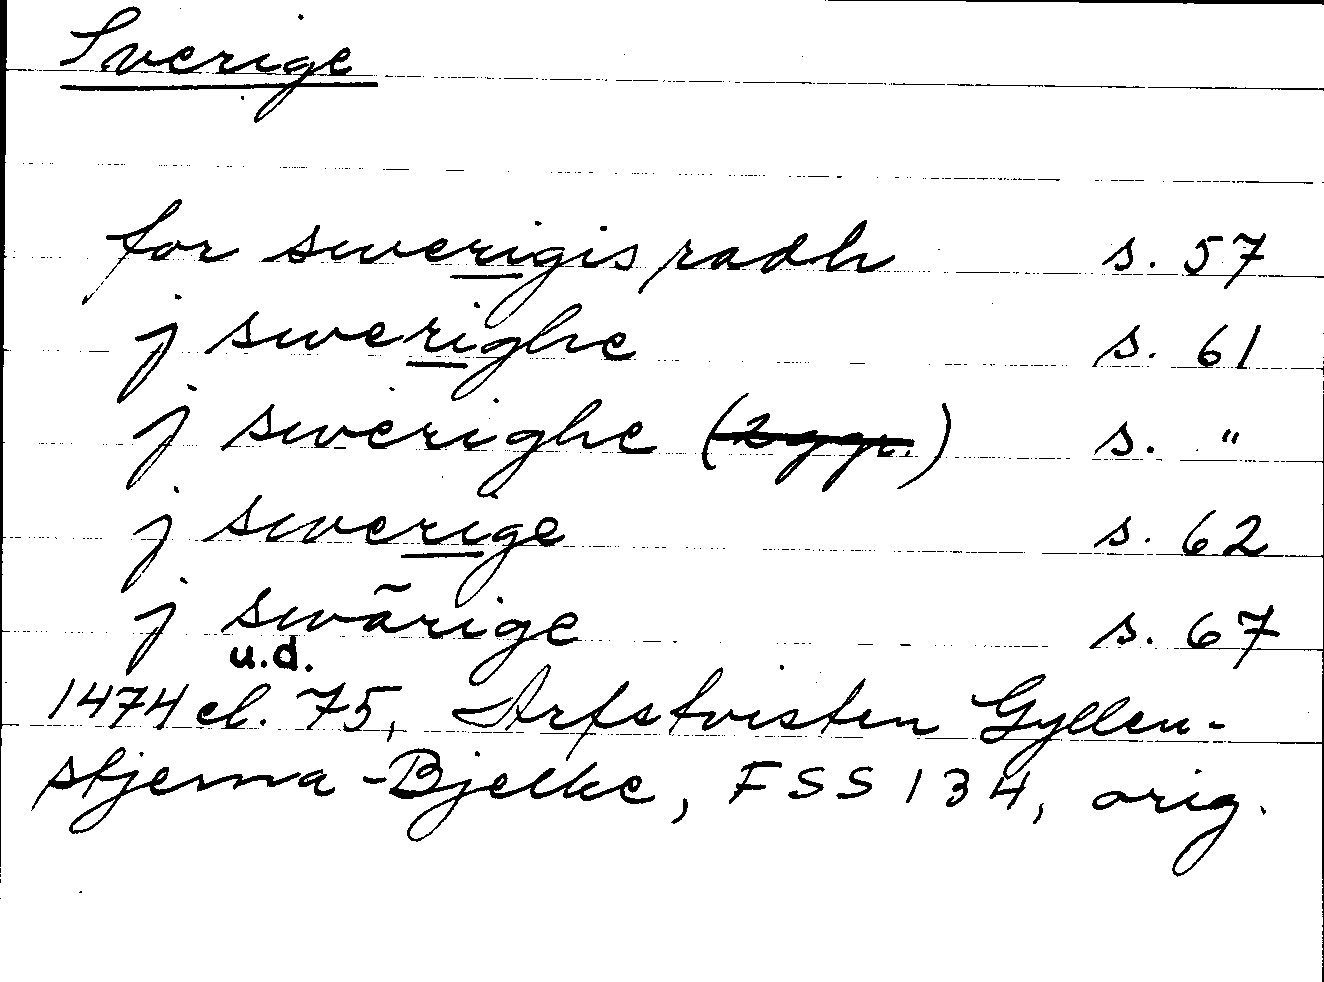 Sverige
for swerigis radh s. 57
j swerighe s. 61
j swerighe (2 ggr.) s. "
j swerige s. 62
j swärige s. 67
u.d.
1474 el. 75, Arfstvisten Gyllen-
stjerna-Bjelke, FSS 134, orig.